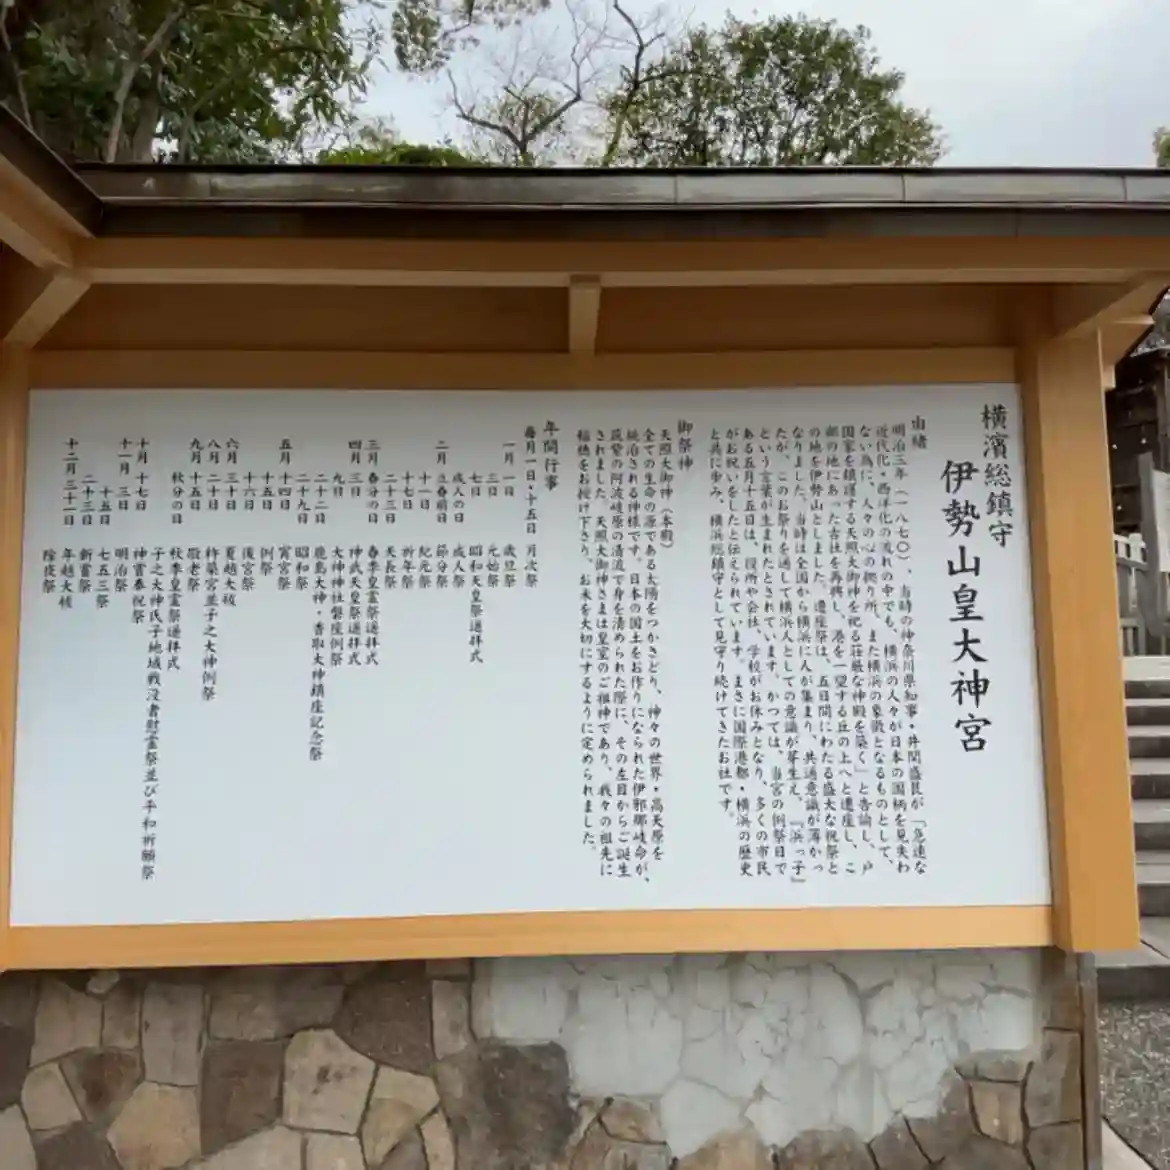 横濱総鎮守
伊勢山皇大神宮
由緒
明治三年(一八七〇)、当時の神奈川県知事・井関盛艮が「急速な
近代化・西洋化の流れの中でも、横浜の人々が日本の国柄を見失わ
ない為に、人々の心の拠り所、また横浜の象徴となるものとして、
国家を鎮護する天照大御神を祀る荘厳な神殿を築く」と告諭し、戸
部の地にあった古社を再興し、港を一望する丘の上へと遷座し、こ
の地を伊勢山としました。遷座祭は、五日間にわたる盛大な祝祭と
なりました。当時は全国から横浜に人が集まり、共通意識が薄かっ
たが、このお祭りを通して横浜人としての意識が芽生え、『浜っ子』
という言葉が生まれたとされています。かつては、当宮の例祭日で
ある五月十五日は、役所や会社、学校がお休みとなり、多くの市民
がお祝いをしたと伝えられています。まさに国際港都・横浜の歴史
と共に歩み、横浜総鎮守として見守り続けてきたお社です。
御祭神
天照大御神(本殿)
全ての生命の源である太陽をつかさどり、神々の世界・高天原を
統治される神様です。日本の国土をお作りになられた伊邪那岐命が、
筑紫の阿波岐原の清流で身を清められた際に、その左目からご誕生
されました。天照大御神さまは皇室のご祖神であり、我々の祖先に
稲穂をお授け下さり、お米を大切にするように定められました。
年間行事
毎月一日・十五日 月次祭
一月 一日 歳旦祭
三日 元始祭
七日 昭和天皇祭遥拝式
成人の日 成人祭
二月 立春前日 節分祭
十一日 紀元祭
十七日 祈年祭
二十三日 天長祭
三月 春分の日 春季皇霊祭遥拝式
四月 三日 神武天皇祭遥拝式
九日 大神神社磐座例祭
二十二日 鹿島大神・香取大神鎮座記念祭
二十九日 昭和祭
五月 十四日 宵宮祭
十五日 例祭
十六日 後宮祭
六月 三十日 夏越大祓
八月 二十日 杵築宮並子之大神例祭
九月 十五日 敬老祭
秋分の日 秋季皇霊祭遥拝式
子之大神氏子地域戦没者慰霊祭並び平和祈願祭
十月 十七日 神嘗奉祝祭
十一月 三日 明治祭
十五日 七五三祭
二十三日 新嘗祭
十二月 三十一日 年越大祓
除夜祭